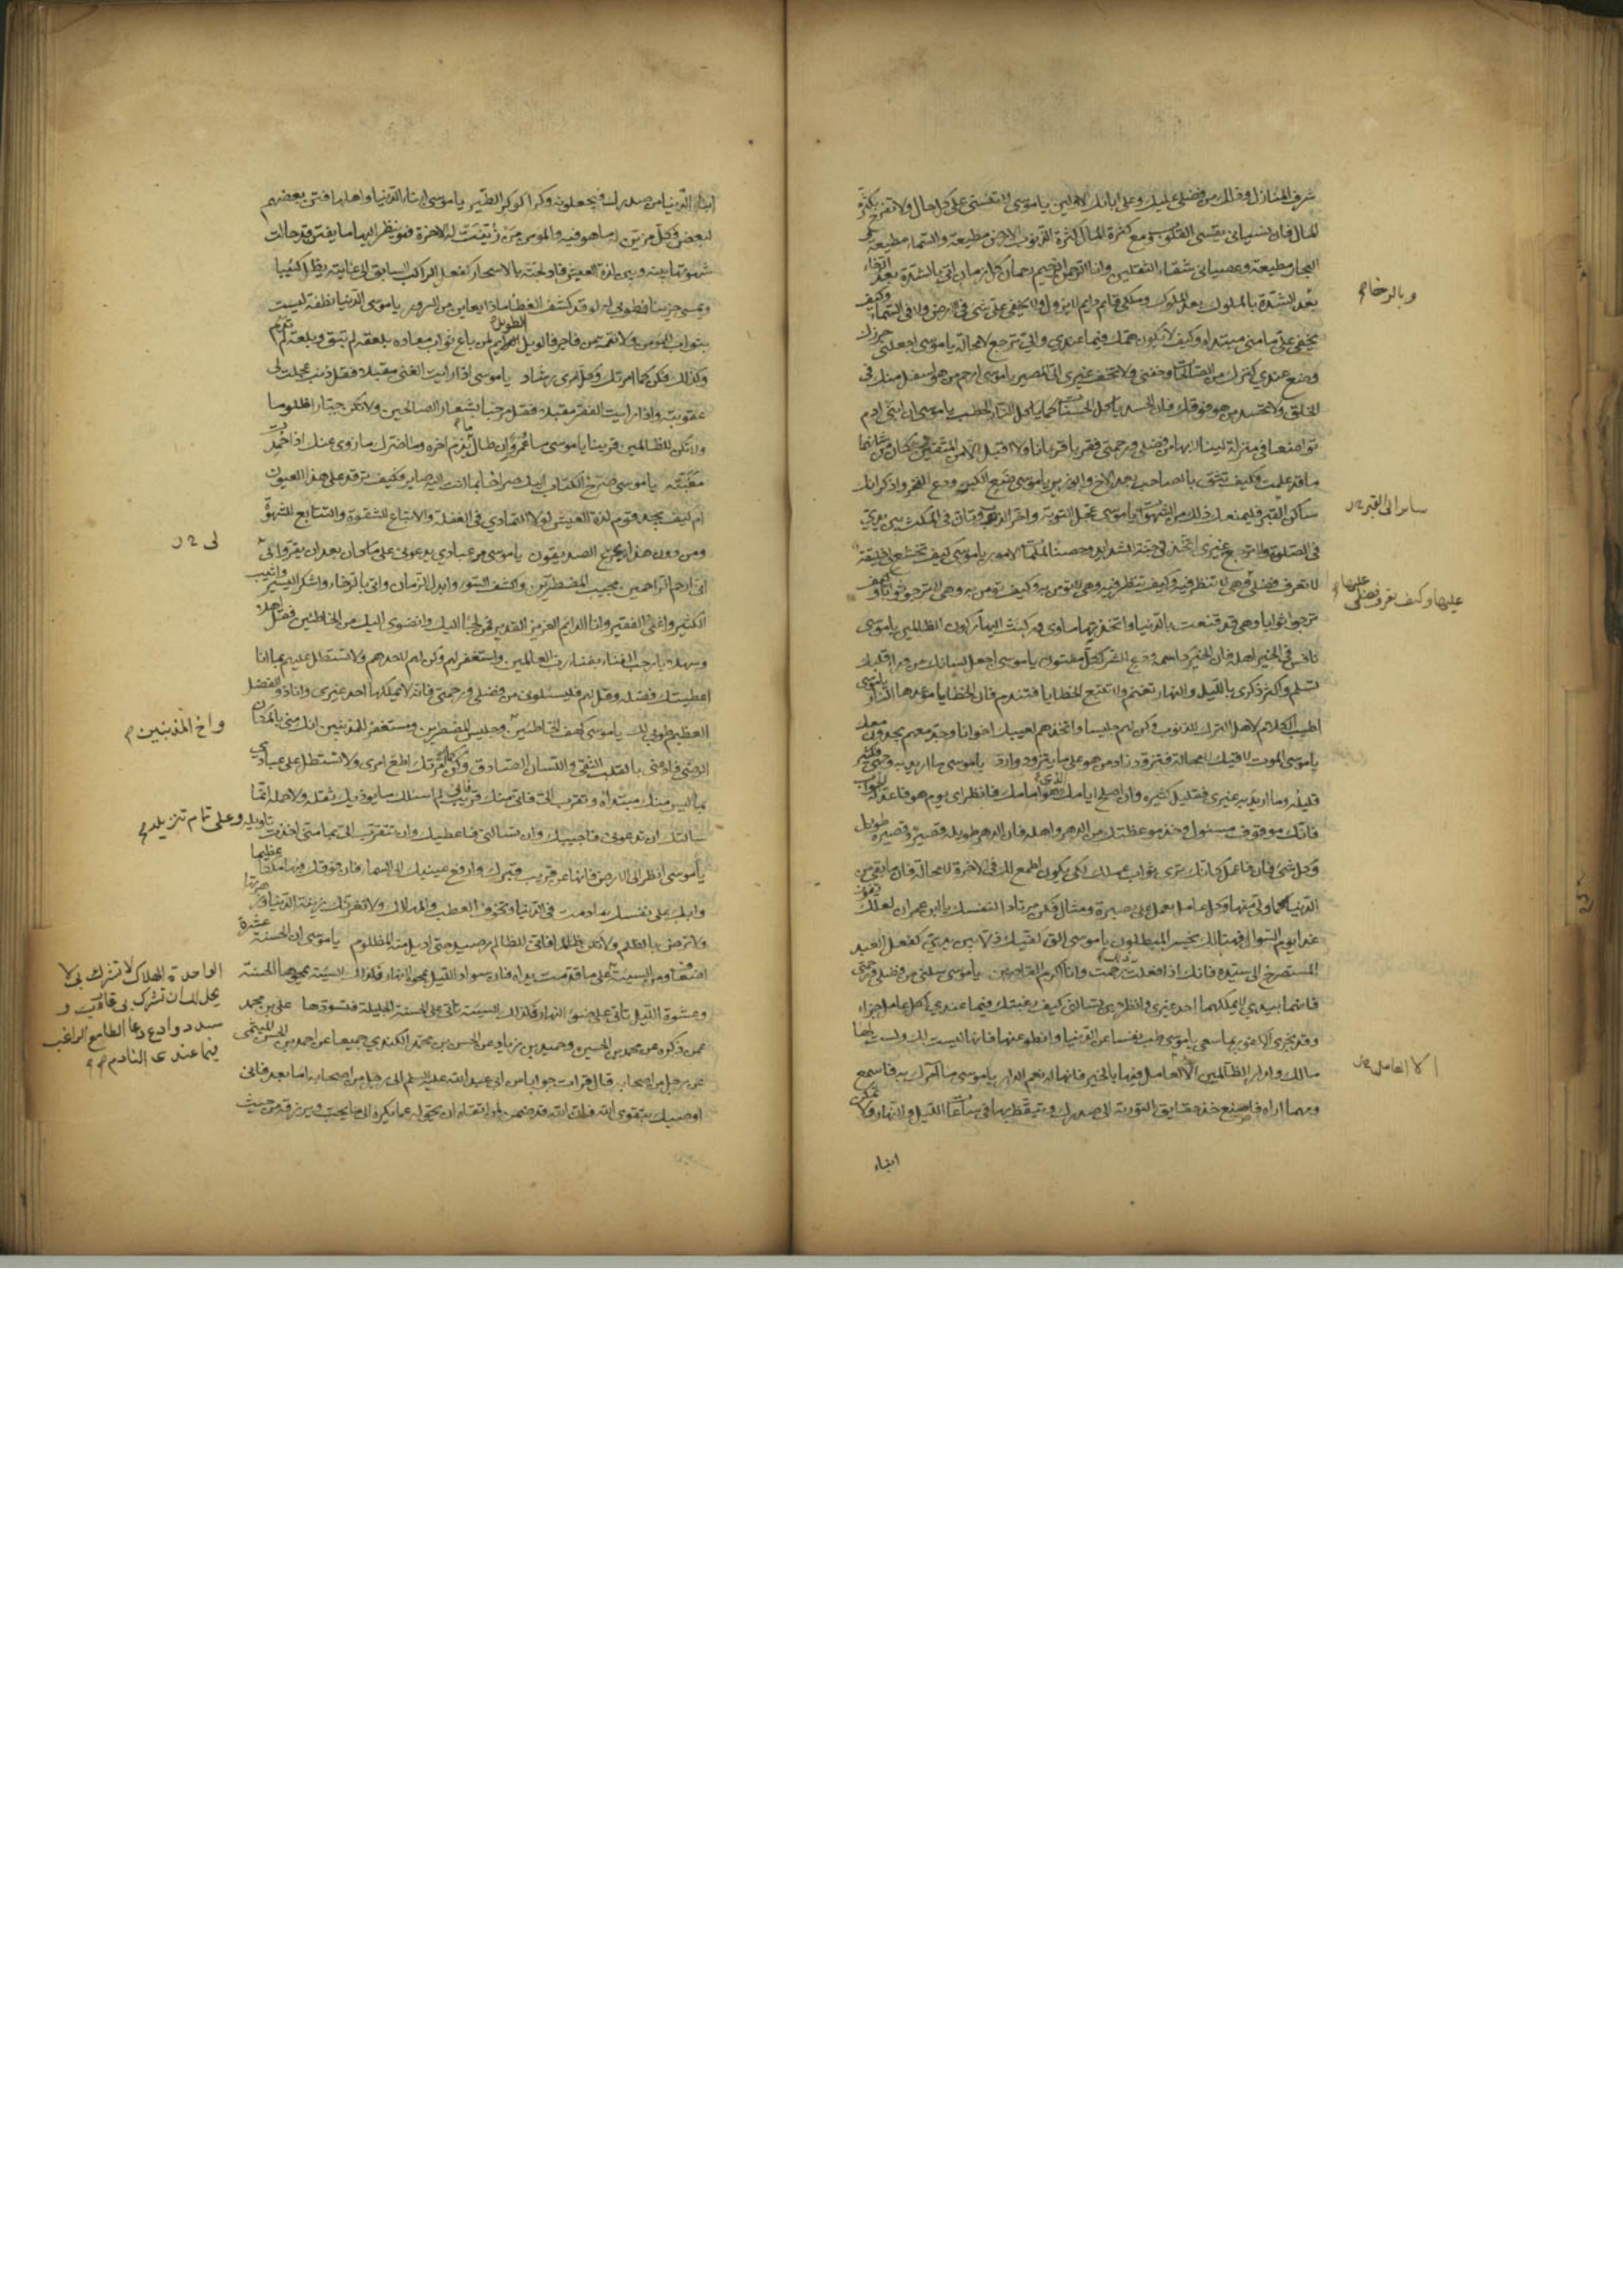 شرف المنازل وذلك من فضلي عليك وعلى ابائك الاولين يا موسى لا تنسني على كل حال ولا تفرح بكثرة
المال فان نسياني يقسي القلوب ومع كثرة المال كثرة الذنوب الارض مطيعة والسماء مطيعة
البحار مطيعة وعصياني شقاء الثقلين وانا الرحمن الرحيم رحمان كل زمان اتي بالشدة بعد الرخاء
وبالرخاء
بعد الشدة بالملوك بعد الملوك وملكي قايم دايم لا يزول ولا يخفى علي شئ في الارض ولا في السماء وكيف
يخفى علي ما مني مبتداه وكيف لا يكون همك فيما عندي والي ترجع لا محالة يا موسى اجعلني حرزك
وضع عندي كنزك من الصالحات وخفني ولا تخف غيري الي المصير يا موسى ارحم من هو اسفل منك في
الخلق ولا تحسد من هو فوقك فان الحسد ياكل الحسنات كما ياكل النار الحطب يا موسى ان ابني ادم
تواضعا في منزلة لينالا بها من فضلي ورحمتي فقربا قربانا ولا اقبل الا من المتقين فكان من شانهما
ما قد علمت وكيف تثق بالصاحب بعد الاخ والوزير يا موسى ضع الكبر ودع الفخر واذكر انك
ساكن القبر فليمنعك ذلك من الشهوات يا موسى عجل التوبة واخر الذنب وتان في المكث بين يدي
في الصلوة ولا ترجع غيري اتخذني جنة للشدايد وحصنا لملمات الامور يا موسى كيف تخشع لي خليقة
لا تعرف فضلي عليها وكيف تعرف فضلي عليها
وهي لا تنظر فيه وكيف تنظر فيه وهي لا تؤمن به وكيف تؤمن به وهي لا ترجو ثوابا وكيف
ترجو ثوابا وهي قد قنعت بالدنيا واتخذتها ماوى وركنت اليها ركون الظالمين يا موسى
نافس في الخير اهله فان الخير كاسمه ودع الشر لكل مفتون يا موسى اجعل لسانك من وراء قلبك
تسلم واكثر ذكري بالليل والنهار تغنم ولا تتبع الخطايا فتندم فان الخطايا موعدها النار يا موسى
اطيب الكلام لاهل الترك للذنوب وكن لهم جليسا واتخذهم لغيبك اخوانا وجد معهم يجدون معك
يا موسى الموت لاقيك لا محالة فتزود زاد من هو على ما يتزود وارد يا موسى ما اريد به وجهي فكثير
قليله وما اريد به غيري فقليل كثيره وان اصلح ايامك الذي هو امامك فانظر اي يوم هو فاعد له الجواب
فانك موقوف مسئول وخذ موعظتك من الدهر واهله فان الدهر طويله قصير وقصيره طويل
وكل شئ فان فاعمل كانك ترى ثواب عملك لكي يكون اطمع لك في الاخرة لا محالة فان ما بقي من
الدنيا كما ولى منها وكل عامل يعمل على بصيرة ومثال فكن مرتادا لنفسك يا ابن عمران لعلك تفوز
غدا يوم السؤال فهنالك يخسر المبطلون يا موسى الق كفيك ذلا بين يدي كفعل العبد
المستصرخ الى سيده فانك اذا فعلت ذلك رحمت وانا اكرم القادرين يا موسى سلني من فضلي ورحمتي
فانهما بيدي لا يملكهما احد غيري وانظر حين تسالني كيف رغبتك فيما عندي لكل عامل جزاء
وقد يجزى الكفور بما سعى يا موسى طب نفسا عن الدنيا وانطو عنها فانها ليست لك ولست لها
مالك ولدار الظالمين الا العامل فيها بالخير فانها له نعم الدار يا موسى ما آمرك به فاسمع
ومهما اراه فاصنع خذ حقايق التورية الى صدرك وتيقظ بها في ساعات الليل والنهار ولا تمكن
ابناء
ابناء الدنيا من صدرك فيجعلونه وكرا كوكر الطير يا موسى ابناء الدنيا واهلها فتن بعضهم
لبعض فكل مزين له ما هو فيه والمؤمن من زينت له الاخرة فهو ينظر اليها ما يفتر قد حالت
شهوتها بينه وبين لذة العيش فادلجته بالاسحار كفعل الراكب السابق الى غايته يظل كئيبا
ويمسي حزينا فطوبى له لو قد كشف الغطاء ماذا يعاين من السرور يا موسى الدنيا نطفة ليست
بثواب للمؤمن ولا نقمة من فاجر فالويل الطويل لمن باع ثواب معاده بلعقة لم تبق وبلعسة لم تدم
وكذلك فكن كما امرتك وكل امري رشاد يا موسى اذا رايت الغنى مقبلا فقل ذنب عجلت لي
عقوبته واذا رايت الفقر مقبلا فقل مرحبا بشعار الصالحين ولا تكن جبارا ظلوما
ولا تكن للظالمين قرينا يا موسى ما عمر وان طال يذم اخره وما ضرك ما زوي عنك اذا حمدت
مغبته يا موسى صرخ الكتاب اليك صراخا بما انت اليه صاير فكيف ترقد على هذا العيون
ام كيف يجد قوم لذة العيش لولا التمادي في الغفلة والاتباع للشقوة والتتابع للشهوة
ومن دون هذا يجزع الصديقون يا موسى مر عبادي يدعوني على ما كان بعد ان يقروا لي
اني ارحم الراحمين مجيب المضطرين واكشف السوء وابدل الزمان واتي بالرخاء واشكر اليسير واثيب
الكثير واغني الفقير وانا الدايم العزيز القدير فمن لجا اليك وانضوى اليك من الخاطئين فقل اهلا
وسهلا يا رحب الفناء بفناء رب العالمين واستغفر لهم وكن لهم كاحدهم ولا تستطل عليهم بما انا
اعطيتك فضله وقل لهم فليسئلوني من فضلي ورحمتي فانه لا يملكها احد غيري وانا ذو الفضل
العظيم طوبى لك يا موسى كهف الخاطئين وجليس المضطرين ومستغفر للمذنبين انك مني بالمكان
واخ المذنبين
الرضي فادعني بالقلب النقي واللسان الصادق وكن كما امرتك اطع امري ولا تستطل على عبادي
بما ليس منك مبتداه وتقرب الي فاني منك قريب فاني لم اسئلك ما يوذيك ثقله ولا حمله انما
سالتك ان تدعوني فاجيبك وان تسالني فاعطيك وان تتقرب الي بما مني اخذت تاويله وعلي تمام تنزيله
يا موسى انظر الى الارض فانها عن قريب قبرك وارفع عينيك الى السماء فان فوقك فيها ملكا عظيما
وابك على نفسك ما دمت في الدنيا وتخوف العطب والمهالك ولا تغرنك زينة الدنيا وزهرتها
ولا ترض بالظلم ولا تكن ظالما فاني للظالم رصيد حتى اديل منه المظلوم يا موسى ان الحسنة عشرة
اضعاف ومن السيئة
الواحدة الهلاك لا تشرك بي لا
يحل لك ان تشرك بي قارب و
سدد وادع دعا الطامع الراغب
فيما عندي النادم
على ما قدمت يداه فان سواد الليل يمحوه النهار فكذلك السيئة يمحوها الحسنة
وعشوة الليل تاتي على ضوء النهار فكذلك السيئة تاتي على الحسنة الجليلة فتسودها علي بن محمد
عمن ذكره عن محمد بن الحسين وحميد بن زياد عن الحسن بن محمد الكندي جميعا عن احمد بن الحسن الميثمي
عن رجل من اصحابه قال قرات جوابا من ابي عبد الله عليه السلم الى رجل من اصحابه اما بعد فاني
اوصيك بتقوى الله فان الله قد ضمن لمن اتقاه ان يحوله عما يكره الى ما يحب ويرزقه من حيث